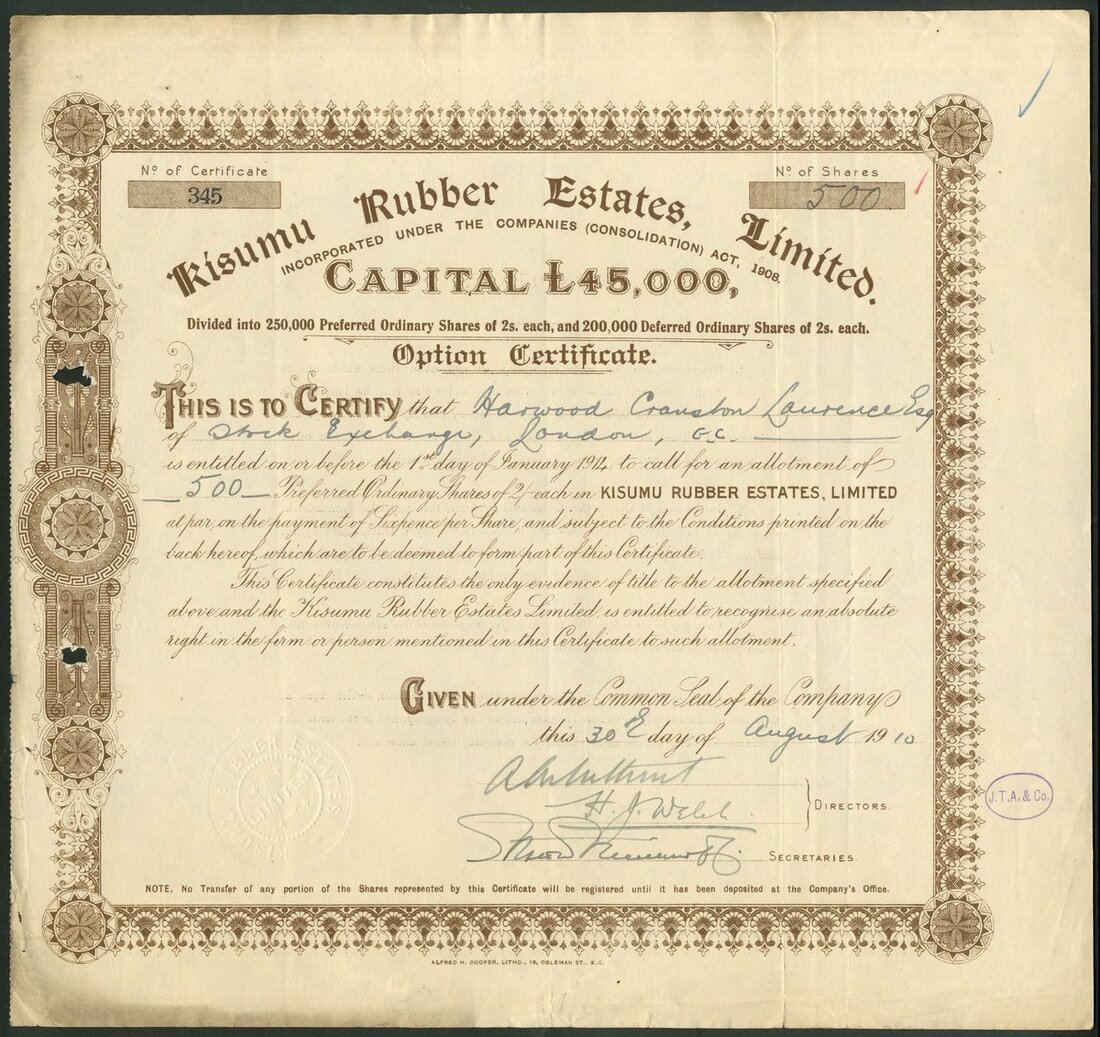 No of Certificate
345
No. of Shares
500
Kisumu Rubber Estates, Limited.
INCORPORATED UNDER THE COMPANIES (CONSOLIDATION) ACT, 1908.
CAPITAL £45,000,
Divided into 250,000 Preferred Ordinary Shares of 2s. each, and 200,000 Deferred Ordinary Shares of 2s. each.
Option Certificate.
THIS IS TO CERTIFY that Harwood Cranston Laurence Esq
of Stock Exchange, London, E.C.
is entitled on or before the 1st day of January 1912, to call for an allotment of
500 Preferred Ordinary Shares of 2/- each in KISUMU RUBBER ESTATES, LIMITED
at par, on the payment of Sixpence per Share, and subject to the Conditions printed on the
back hereof, which are to be deemed to form part of this Certificate.
This Certificate constitutes the only evidence of title to the allotment specified
above and the Kisumu Rubber Estates Limited, is entitled to recognise an absolute
right in the form or person mentioned in this Certificate to such allotment.
GIVEN under the Common Seal of the Company
this 30th day of August 1910
H. J. Welch
DIRECTORS.
SECRETARIES.
J.T.A. & Co.
NOTE. No Transfer of any portion of the Shares represented by this Certificate will be registered until it has been deposited at the Company's Office.
ALFRED H. COOPER, LITHO., 19, COLEMAN ST., E.C.